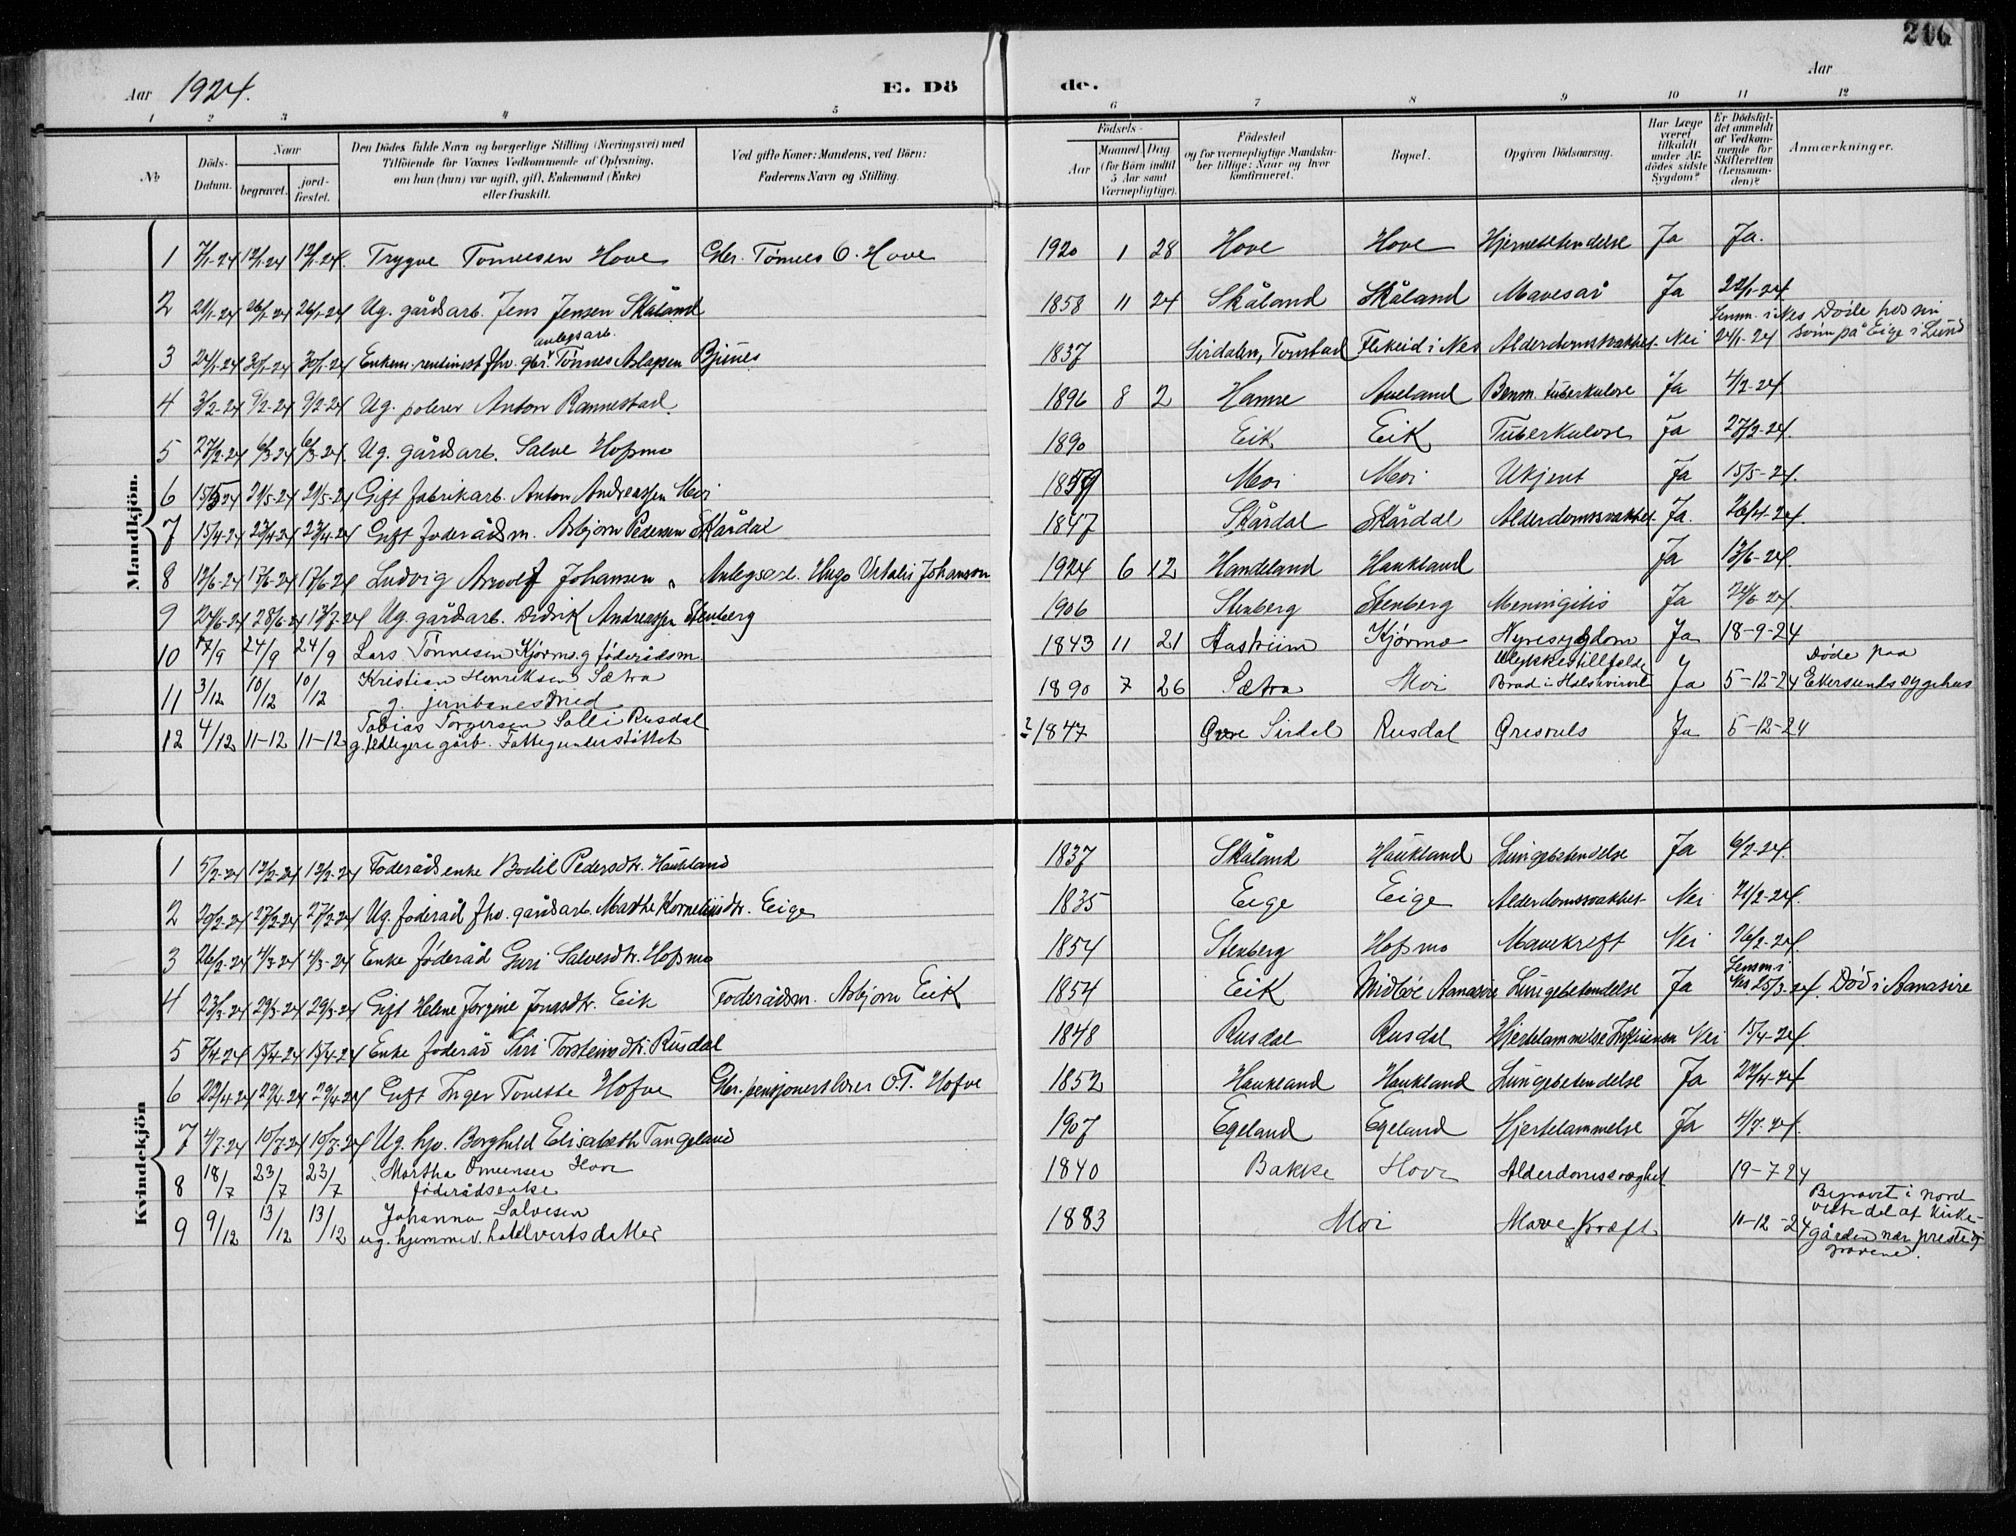 206
Aar 1924.
E. Dö
de.
Aar
1 2 3 4 5 6 7 8 9 10 11 12
№
Döds-Datum.
Naar
begravet.
jord-fæstet.
Den Dödes fulde Navn og borgerlige Stilling (Næringsvei) med
Tilföiende for Voxnes Vedkommende af Oplysning,
om han (hun) var ugift, gift, Enkemand (Enke)
eller fraskilt.
Ved gifte Koner: Mandens, ved Börn:
Faderens Navn og Stilling.
Födsels-
Aar
Maaned. Dag.
(for Börn indtil
5 Aar samt
Værnepligtige).
Födested
og for værnepligtige Mandska-
ber tillige: Naar og hvor
konfirmeret.
Bopæl.
Opgiven Dödsaarsag.
Har Læge
været
tilkaldt
under Af-
dödes sidste
Sygdom?
Er Dödsfal-
det anmeldt
af Vedkom-
mende for
Skifteretten
(Lensman-
den)?
Anmærkninger.
Mandkjön.
1 7/1-24 12/1-24 12/1-24. Trygve Tonnesen Hove Gbr. Tønnes O. Hove 1920 1 28 Hove Hove Hjernebetendelse Ja Ja.
2 21/1-24 26/1-24 26/1-24 Ug. gårdsarb. Jens Jensen Skåland 1858 11 24 Skåland Skåland Mavesår Ja 22/1-24
anlegsarb. Lensm. i Nes Døde hos sin
3 24/1-24 30/1-24 30/1-24 Enkem. rentenist fhv. gbr. Tønnes Aslaksen Bjunes 1837 Sirdalen, Tonstad Flikeid i Nes Alderdomssvakhet Nei 24/1-24 sønn på Eige i Lund
4 3/2-24 9/2-24 9/2-24 Ug. polerer Anton Rannestad 1896 8 2 Hamre Aueland Benm. tuberkulose Ja 4/2-24
5 27/2-24 6/3-24 6/3-24. Ug. gårdsarb. Salve Hofsmo 1890 Eik Eik Tuberkulose Ja 27/2-24.
6 15/5-24 21/5-24 21/5-24 Gift fabrikarb. Anton Andreassen Moi 1859 Moi Moi Ukjent Ja 15/5-24.
7 15/4-24 23/4-24 23/4-24 Gift foderådsm. Asbjørn Pedersen Skårdal 1847 Skårdal Skårdal Alderdomssvakhet Ja. 16/4-24.
8 12/6-24 17/6-24 17/6-24 Ludvig Arnolf Johansen Anlegsarb. Hugo Vitalis Johanson 1924 6 12 Handeland Haukland Ja 13/6-24.
9 24/6-24 28/6-24 13/7-24 Ug. gårdsarb. Didrik Andreassen Stenberg 1906 Stenberg Stenberg Meningitis Ja 24/6-24.
10 17/9 24/9 24/9 Lars Tönnesen Kjørmo g föderådsm. 1843 11 21 Aastveim Kjørmo Nyresygdom Ja 18-9-24
Kristian Henriksen Sætra Ulykkestillfelde Døde paa
11 3/12 10/12 10/12 g. jernbanesmed 1890 7 26 Sætra Moi Brud i Halshvirvel Ja 5-12-24 Ekersunds sygehus
Tobias Torgersen Salli Rusdal
12 4/12 11-12 11-12 g. tidligere gårb. Fattigunderstøttet ? 1847 Øvre Sirdal Rusdal Ja 5-12-24
Kvindekjön
1 5/2-24 12/2-24 12/2-24 Foderådsenke Bodil Pedersdtr. Haukland 1837 Skåland Haukland Lungebetendelse Ja 6/2-24.
2 20/2-24 27/2-24 27/2-24 Ug. foderåd fhv. gårdsarb. Marthe Korneliusdtr. Eige 1835 Eige Eige Alderdomssvakhet Nei 21/2-24.
3 26/2-24 4/3-24 4/3-24 Enke føderåd Guri Salvesdtr. Hofsmo 1854 Stenberg Hofsmo Mavekreft Nei 26/2-24
Lensm. i
4 23/3-24 29/3-24 29/3-24 Gift Helene Jorgine Jonasdtr. Eik Foderådsm. Asbjørn Eik 1854 Eik Midlbø Aanasire Lungebetendelse Ja Nes 25/3-24. Død i Aanasire
5 7/4-24 15/4-24 15/4-24 Enke foderåd Siri Torsteinsdtr. Rusdal 1848 Rusdal Rusdal Hjertelammelse Influensa Nei 15/4-24
6 22/4-24 29/4-24 29/4-24 Gift Inger Tonette Hofve Gbr. pensjonert lærer O.T. Hofve 1852 Haukland Haukland Lungebetendelse Ja 22/4-24
7 4/7-24 10/7-24 10/7-24 Ug. hjv. Borghild Elisabeth Tangeland 1907 Egeland Egeland Hjertelammelse Ja 4/7-24.
8 18/7 23/7 23/7 Martha Omundsen Hove 1840 Bakke Hove Alderdomssvaghet 19-7-24
föderådsenke
Johanna Salvesen Begravet i nord
9 9/12 13/12 13/12 ug. hjemmev. hotelvertsdatter 1883 Moi Mave Kræft 11-12-24 vestre del af kirke-
gården nær preste
gravene.